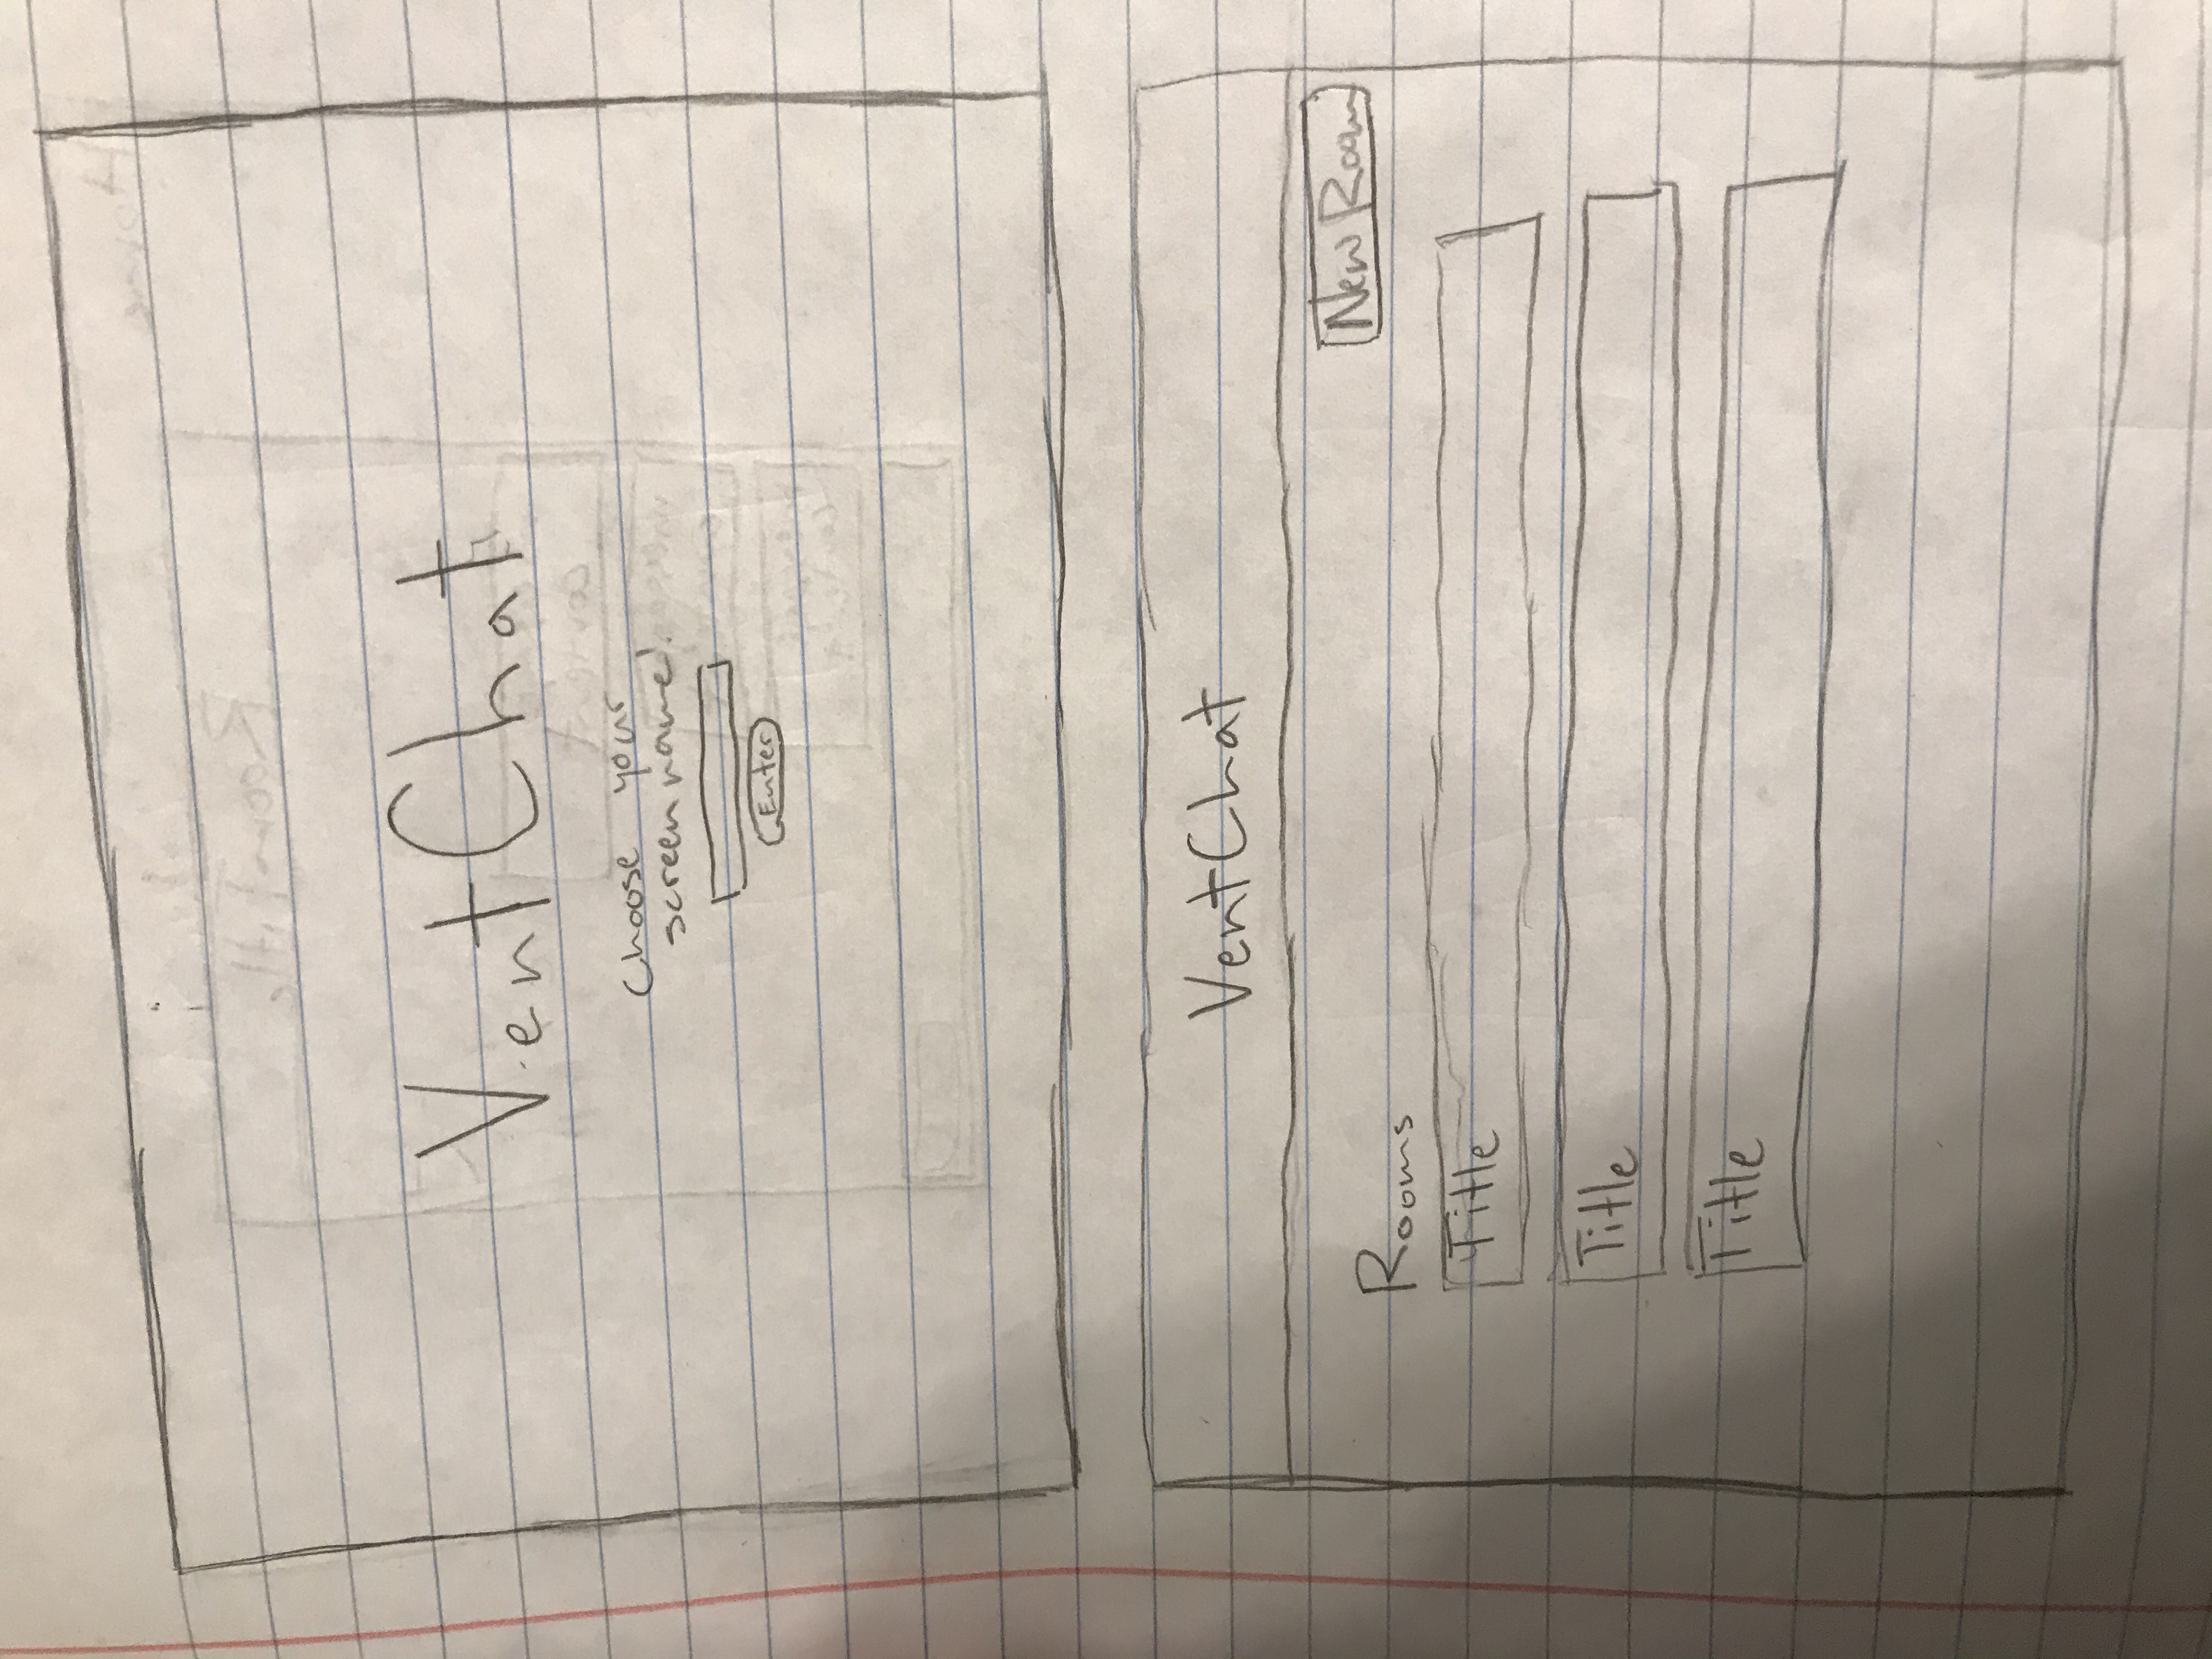 VentChat
Choose your
screen name!
Enter
VentChat
New Room
Rooms
Title
Title
Title